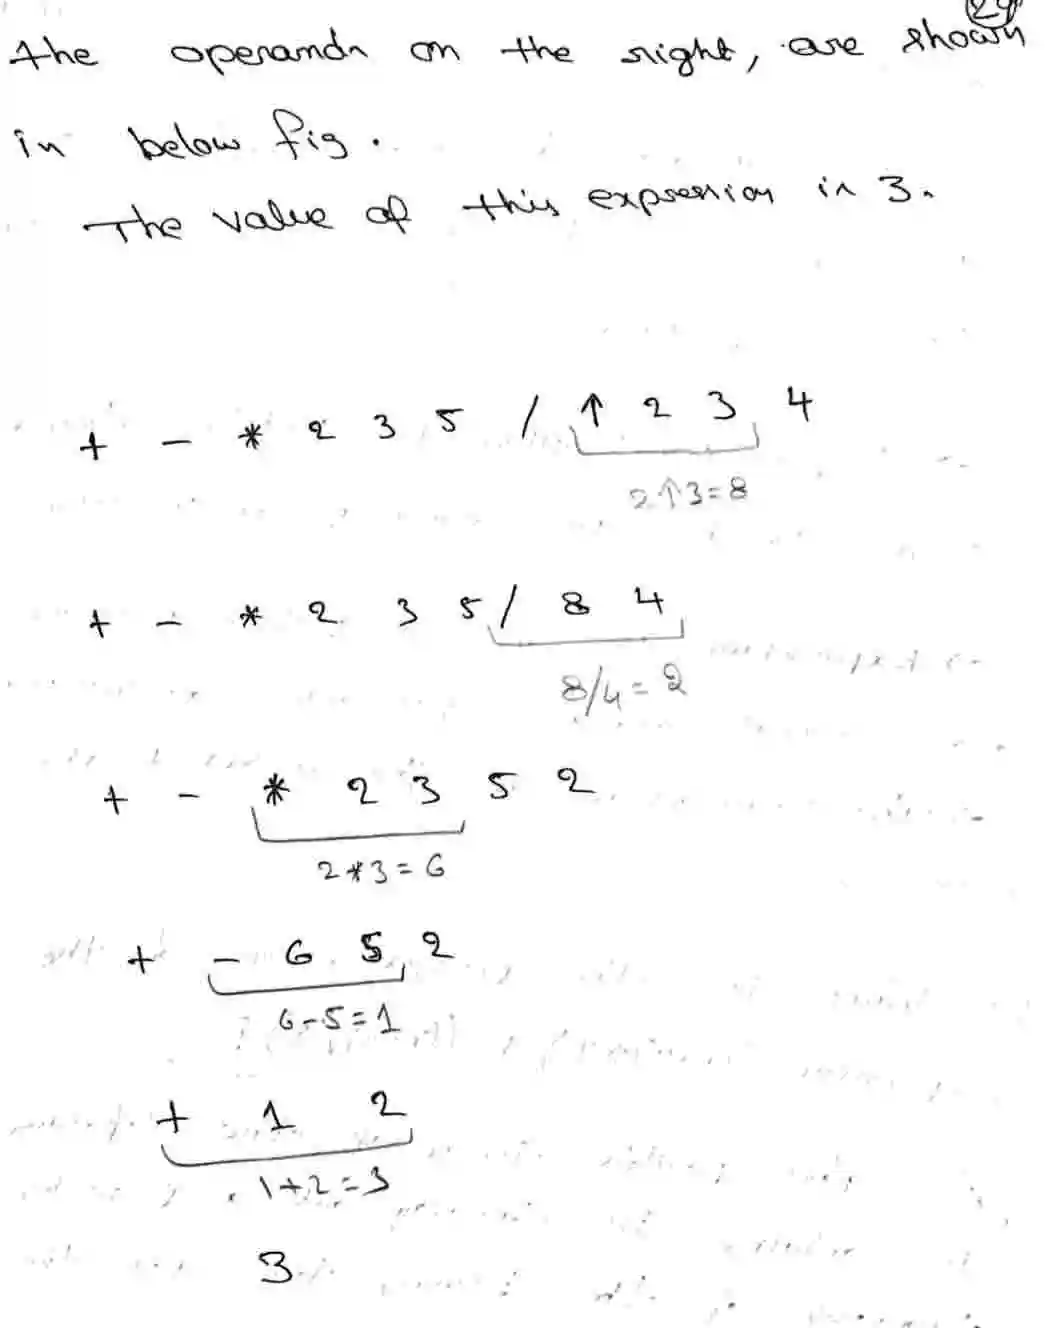 29
the operands on the right, are shown
in below fig.
The value of this expression is 3.
+ - * 2 3 5 / ↑ 2 3 4
2↑3=8
+ - * 2 3 5 / 8 4
8/4=2
+ - * 2 3 5 2
2*3=6
+ - 6 5 2
6-5=1
+ 1 2
1+2=3
3